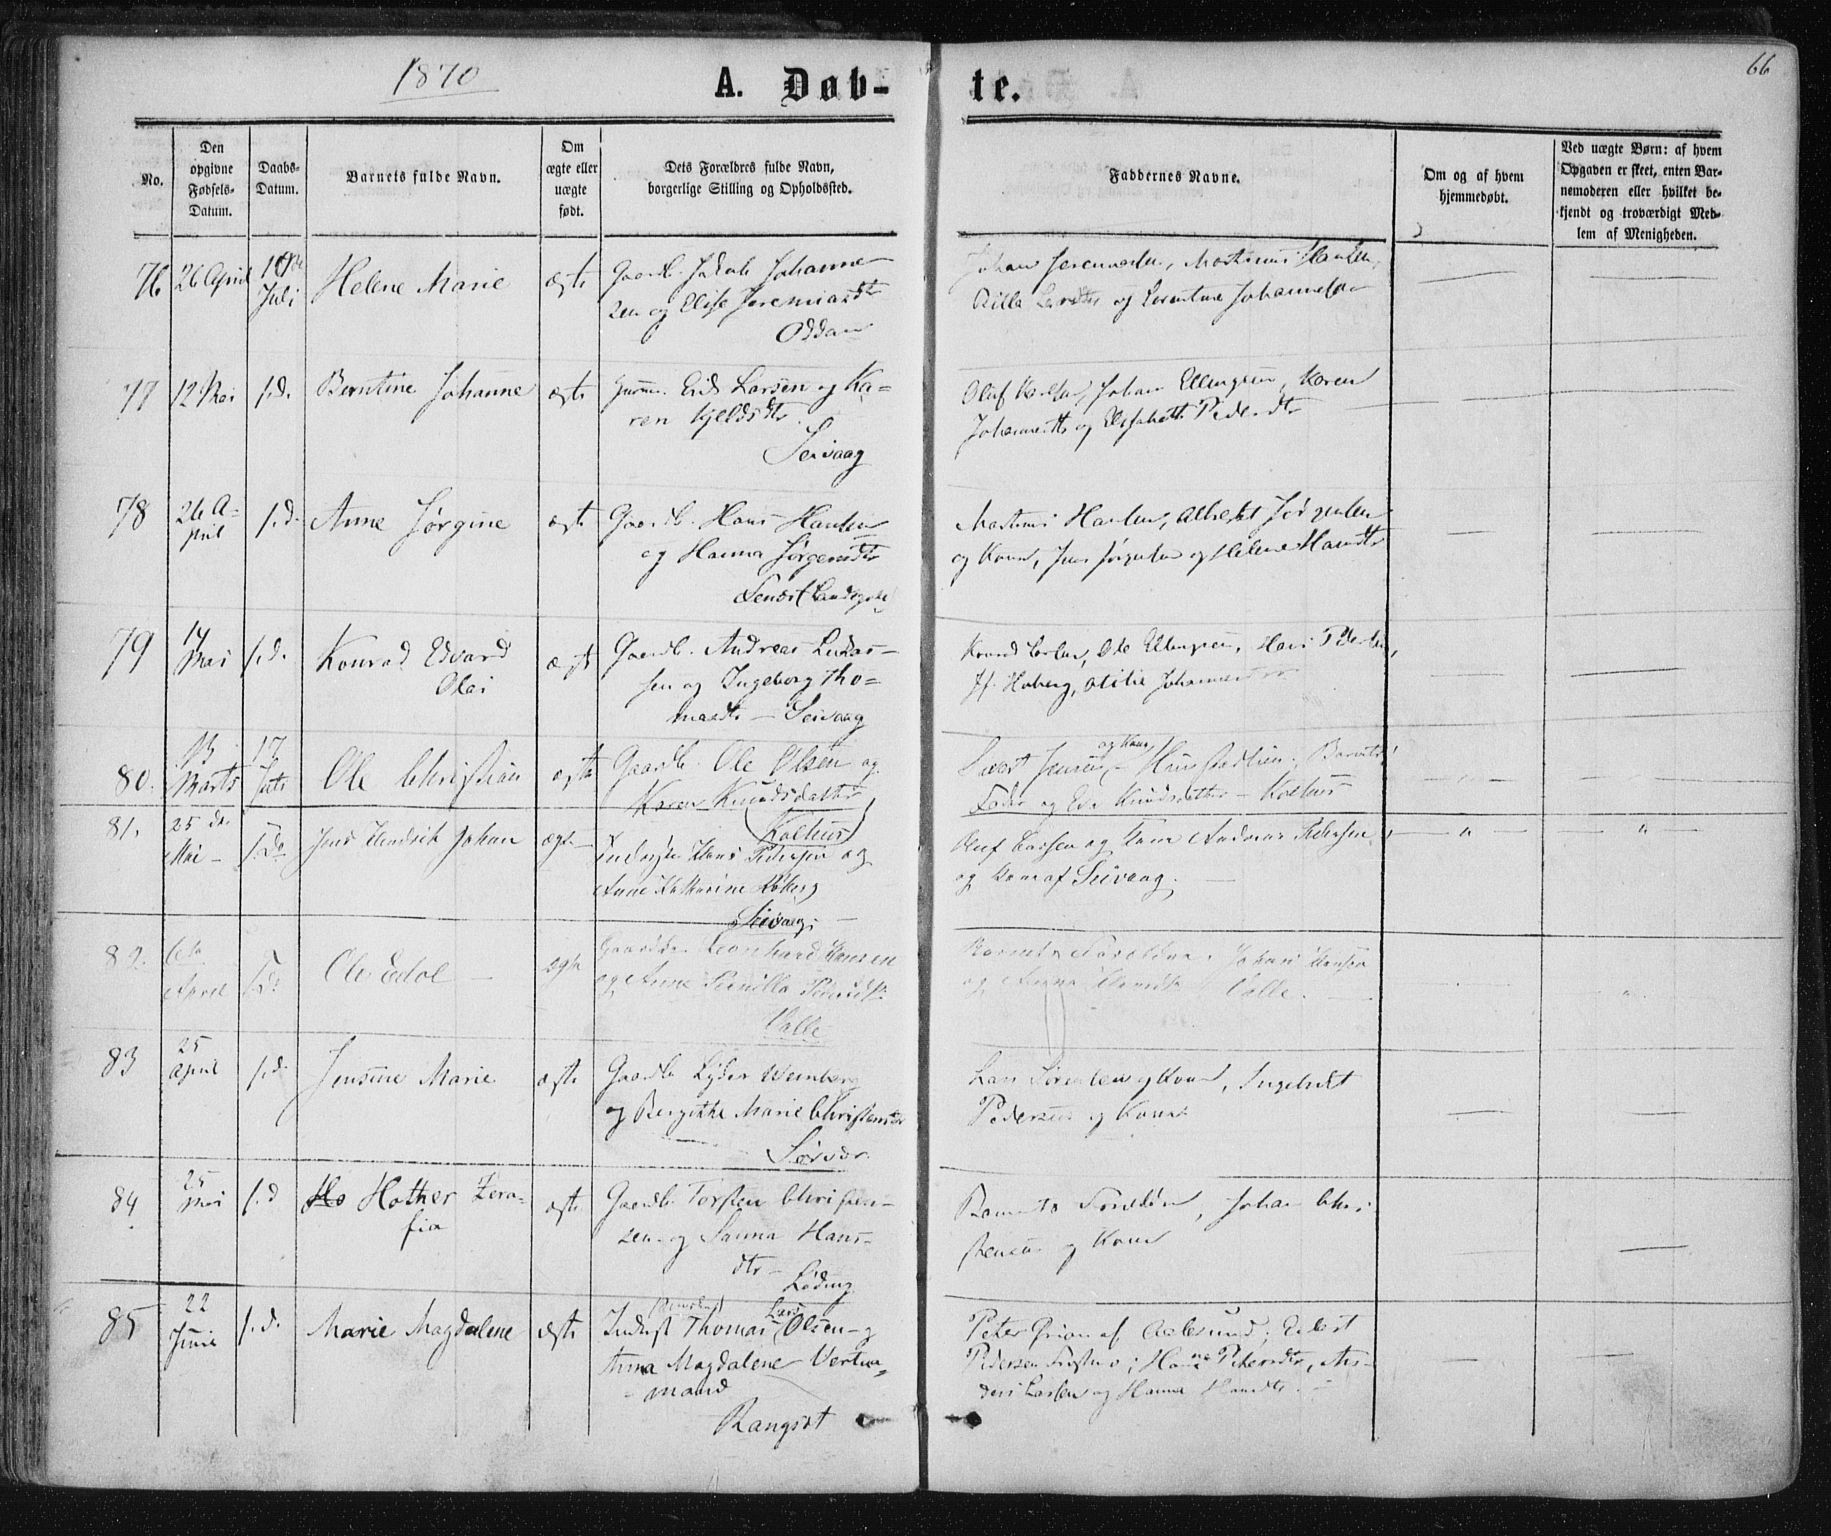 1870
A. Døb-
te.
66
No.
Den opgivne Fødsels-Datum.
Daabs-Datum.
Barnets fulde Navn.
Om ægte eller uægte født.
Dets Forældres fulde Navn, borgerlige Stilling og Opholdssted.
Faddernes Navne.
Om og af hvem hjemmedøbt.
Ved uægte Børn: af hvem Opgaven er skeet, enten Barnemoderen eller hvilket bekjendt og troværdigt Medlem af Menigheden.
76 26 April Juli Helene Marie ægte Gaardb. Jakob Johanne-
sen og Elise Jeremiasdtr
Oddan
Johan Martinus Hansen,
og Johannesen
77 12 Mai s.d. Berntine Johanne ægte Erik Larsen og Ka-
ren Kjeldsdtr.
Seivaag
Oluf Johan Ellingsen, Karen
og Elisabeth Pedersdtr
78 26 A-
pril s.d. Anne Jørgine ægte Gaardb. Hans Hansen
og Hanna Jørgensdtr
Martinus Hansen, Albert Jørgensen
og Kone, Jens Jørgensen og Helene Hansdtr
79 14
Mai s.d. Konrad Edvard
Olai
ægte Gaardb. Andreas Lukas-
sen og Ingeborg Tho-
masdtr — Seivaag
Ole Ellingsen, Hans Pedersen,
H. Hoberg, Otilie
80. 13
Marts 17
Juli Ole Christian ægte Gaardb. Ole Olsen og
Karen Knudsdatter
(Kolhus)
Sivert Jensen og Kone, Barnets
Fader og Knudsdatter — Kolhus
81. 25 de
Mai — s.D. Jens Hendrik Johan ægte — Inderste Hans Pedersen og
Anne Katharine Hoberg
Seivaag.
Oluf Larsen og Kone Andreas Pedersen
og Kone af Seivaag.
82. 6te
April s.D. Ole Edol — ægte Gaardbr. Leonhard Hansen
og Anne Pernilla Pedersdtr.
Valle
Barnets Forældre. Johan Hansen
og Hansdtr Valle.
83 25
April s.d. Jensine Marie ægte Gaardb. Lyder Weinberg
og Bergitte Marie Christensdtr
Sørvær.
Lars Sørensen og Kone, Ingebrikt
Pedersen og Kone
84 25
Mai s.d Ho Hother Zera-
fia
ægte Gaardb. Torsten Christen-
sen og Sanna Hans-
dtr —
Løding
Barnets Forældre, Johan Chri-
stensen og Kone
85 22
Juni s.d. Marie Magdalene ægte Inderst Thomas Lars Olsen og
Anna Magdalene
mand
Rangsæt
Peter af Aalesund; Edert
Pedersen; Hanne Petersdtr, An-
ders Larsen og Hanna Hansdtr.